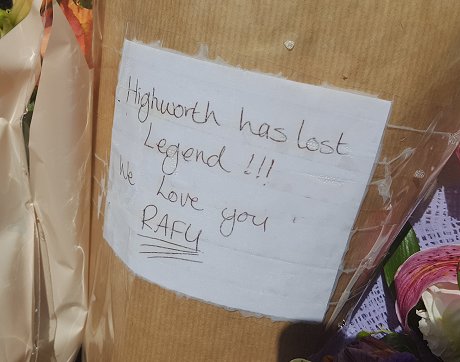 Highworth has lost
Legend !!!
We Love you
RAFU